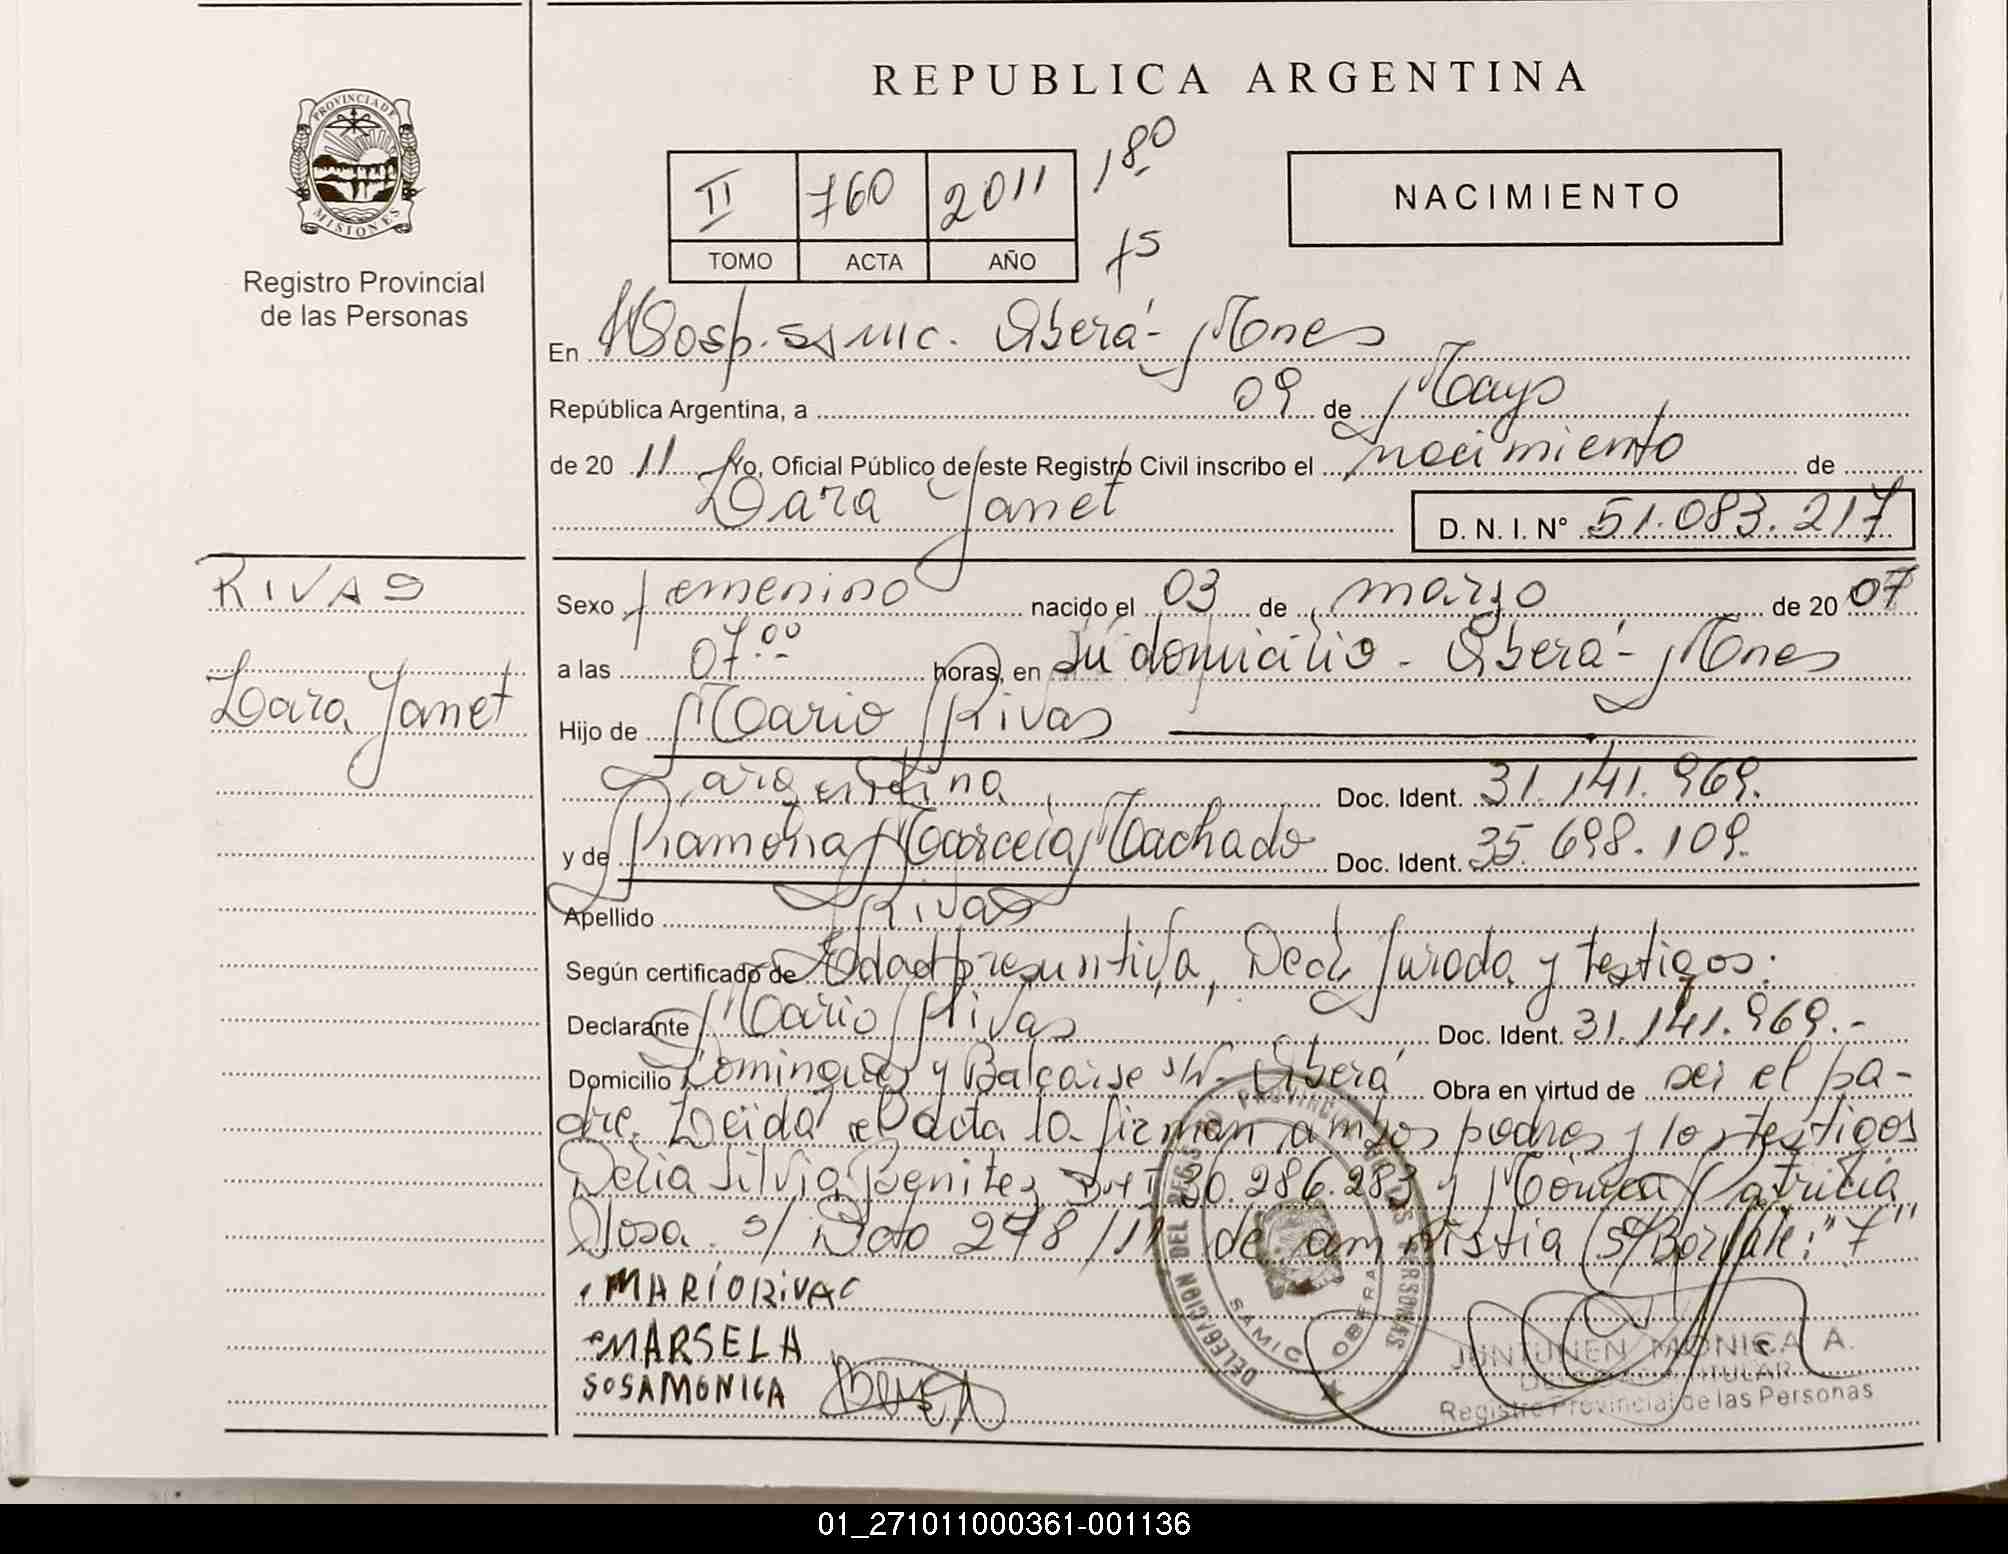 REPUBLICA ARGENTINA
PROVINCIA DE
MISIONES
Registro Provincial
de las Personas
II 760 2011 180
TOMO ACTA AÑO 75
NACIMIENTO
En Hosp. SAMIC. Oberá - Mnes
República Argentina, a 09 de Mayo
de 20 11 Yo, Oficial Público de este Registro Civil inscribo el nacimiento de
Lara Janet D. N. I. N° 51.083.217
RIVAS
Lara Janet
Sexo femenino nacido el 03 de marzo de 20 07
a las 07 00 horas, en su domicilio - Oberá - Mnes
Hijo de Mario Rivas
argentina Doc. Ident. 31.141.969.
y de Ramona Marcela Machado Doc. Ident. 35.698.109.
Apellido Rivas
Según certificado de Edad presuntiva, Decl Jurada y testigos:
Declarante Mario Rivas Doc. Ident. 31.141.969.-
Domicilio Dominguez y Balcarse s/N- Oberá Obra en virtud de ser el pa-
dre. Leída el acta la firman ambos padres y los testigos
Delia Silvia Benitez DNI 30.286.283 y Mónica Patricia
Sosa. s/ Dcto 278/11 de amnistia (S/Bor Vale: "7"
MARÍO RIVAC
MARSELA
SOSA MONICA
DELEGACION DEL REGISTRO PROVINCIAL DE LAS PERSONAS
SAMIC OBERA
JUNTUNEN MONICA A.
DELEGADA TITULAR
Registro Provincial de las Personas
01_271011000361-001136